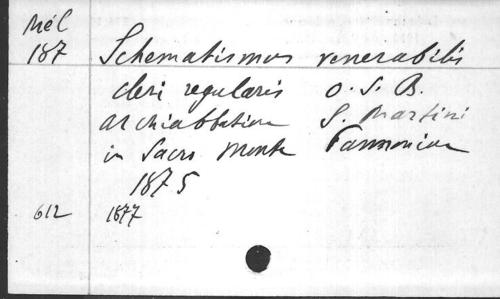 Mél
187 Schematismus venerabilis
cleri regularis O. S. B.
archiabbatiae S. Martini
in Sacro Monte Pannoniae
1875
612 1877